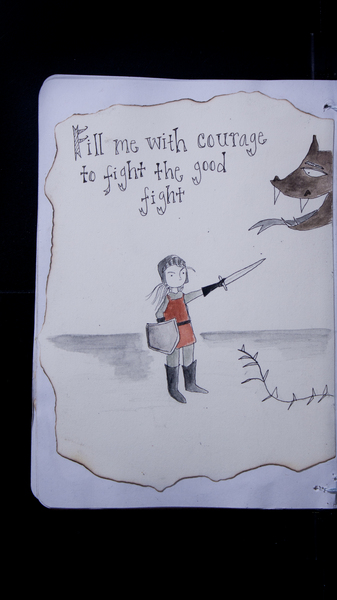 Fill me with courage
to fight the good
fight